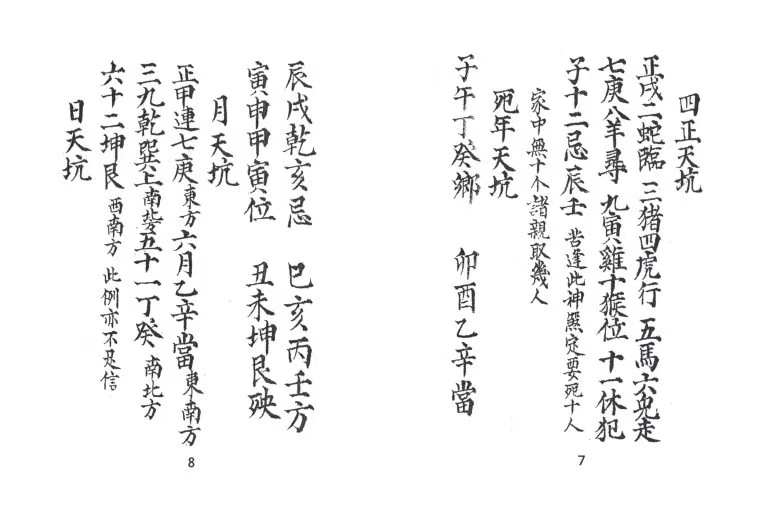 四正天坑
正戌二蛇臨 三猪四虎行 五馬六兎走
七庚八羊尋 九寅雞十猴位 十一休犯
子十二忌辰壬 苦逢此神無定要死十人
家中無十个諸親取幾人
死年天坑
子午丁癸鄉 卯酉乙辛當
7
辰戌乾亥忌 巳亥丙壬方
寅申甲寅位 丑未坤艮殃
月天坑
正甲連七庚東方六月乙辛當東南方
三九乾巽上南 五十一丁癸南北方
六十二坤艮西南方 此例亦不足信
日天坑
8